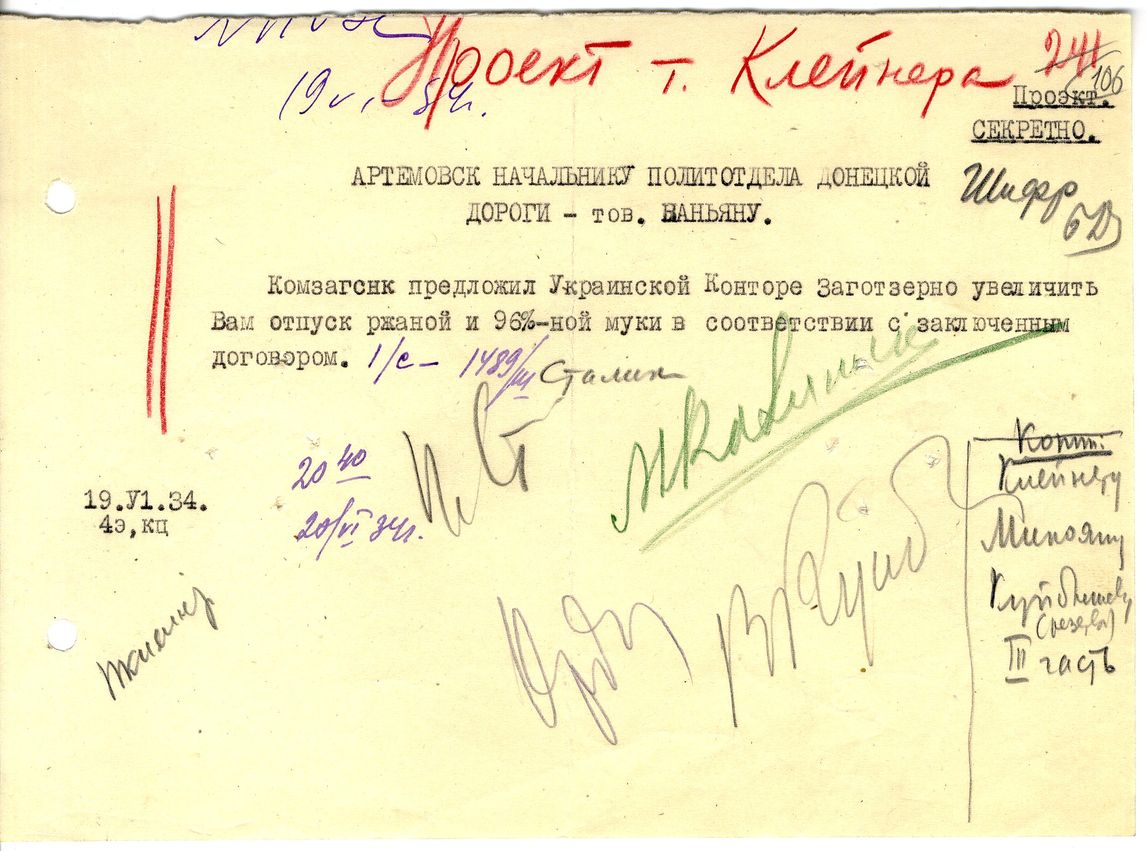 Проект т. Клейнера
241
106
19 VI. 34 г.
Проэкт.
СЕКРЕТНО.
АРТЕМОВСК НАЧАЛЬНИКУ ПОЛИТОТДЕЛА ДОНЕЦКОЙ
ДОРОГИ – тов. ВАНЬЯНУ.
Шифр
Комзагснк предложил Украинской Конторе Заготзерно увеличить
Вам отпуск ржаной и 96%-ной муки в соответствии с заключенным
договором. 1/с – 1489/ш Сталин
И. Ст
20 40
20/VI 34 г.
19.У1.34.
4э,кц
В Куйб
Коп:
Клейнеру
Микояну
Куйбышеву
III часть